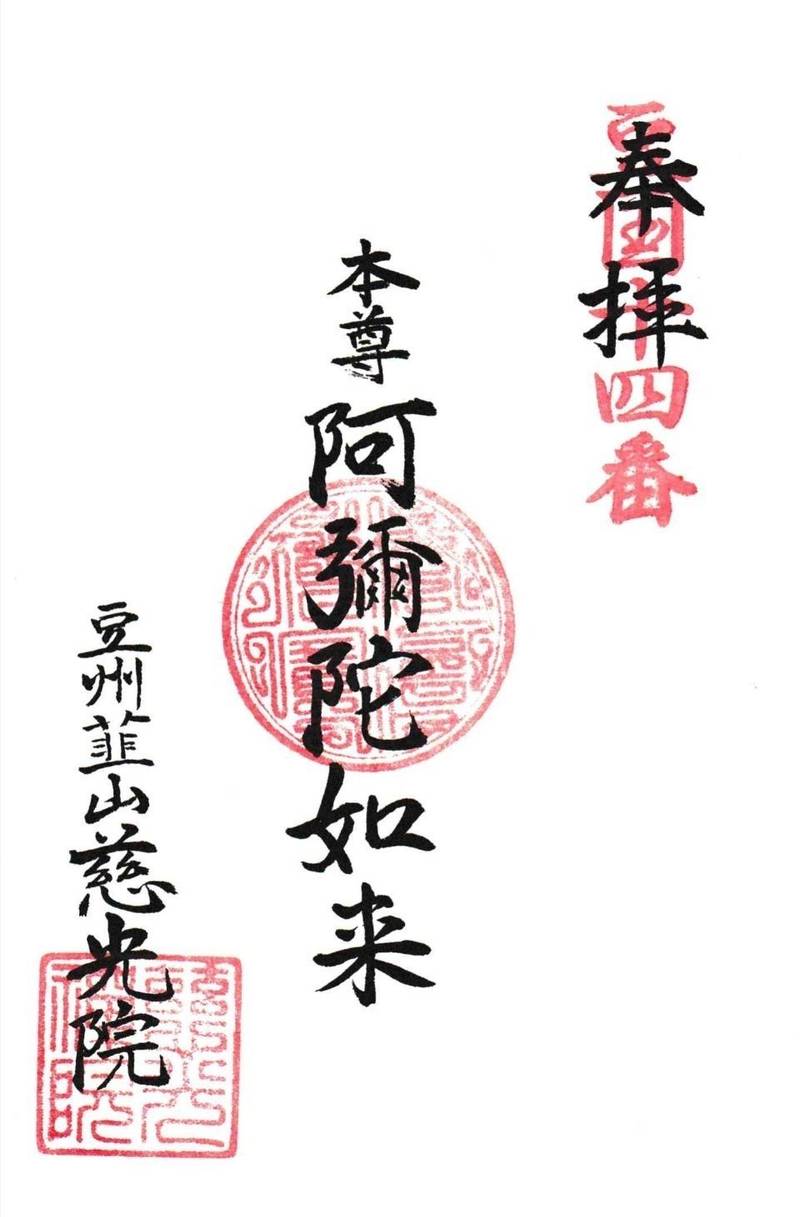 奉拝
四番
本尊 阿彌陀如来
豆州韮山慈光院